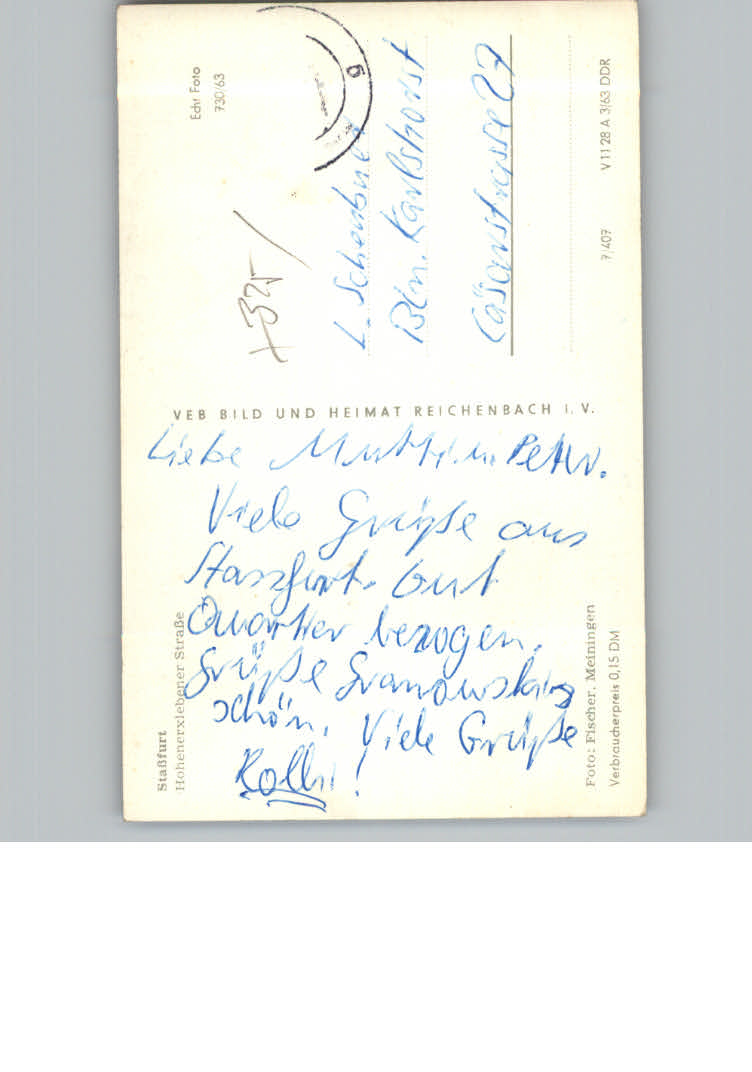 Staßfurt
Hohenerxlebener Straße
Liebe Mutti u. Peter.
Viele Grüße aus
Stassfurt. Gut
Quartier bezogen.
Grüße Granowskis
schön. Viele Grüße
Rolli!
Foto: Fischer, Meiningen
Verbraucherpreis 0,15 DM
VEB BILD UND HEIMAT REICHENBACH I. V.
Echt Foto
730/63
g
L. Schenbner
Bln. Karlshorst
Cäsarstrasse 27
7/407 V 11 28 A 3/63 DDR